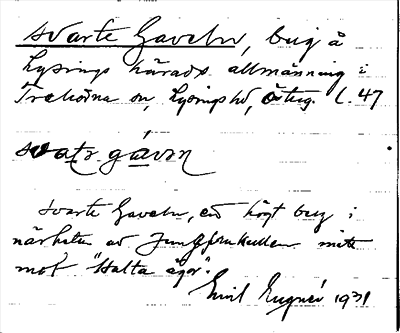 Svarte Gaveln, berg å
Lysings härads allmänning i
Trehörna sn, Lysings hd, Östug. l. 47
svatə gávəṇ
Svarte Gaveln, ett högt berg i
närheten av Jungfrukullen mitt
mot "Halta ägor".
Emil 1931